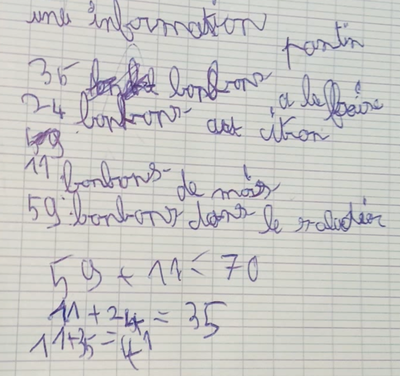 une information
pantin
35 bonbons a la foire
24 bonbons au citron
59
11 bonbons de mois
59 bonbons dans le saladier
59 + 11 = 70
11 + 24 = 35
11+35=41